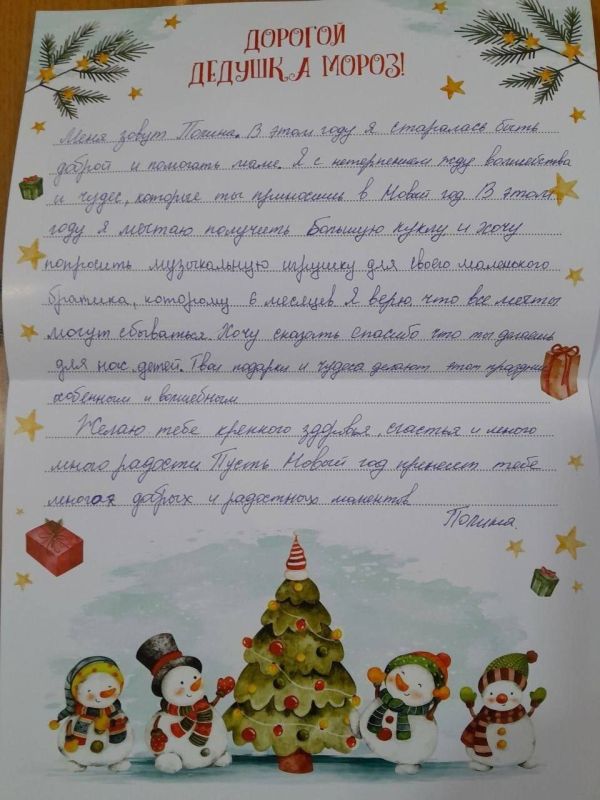 ДОРОГОЙ
ДЕДУШКА МОРОЗ!
Меня зовут Полина. В этом году я старалась быть
доброй и помогать маме. Я с нетерпением жду волшебства
и чудес, которые ты приносишь в Новый год В этом
году я мечтаю получить Большую куклу и хочу
попросить музыкальную игрушку для своего маленького
братика, которому 6 месяцев Я верю что все мечты
могут сбываться. Хочу сказать спасибо что ты делаешь
для нас детей. Твои подарки и чудеса делают этот праздник
собенным и волшебным
Желаю тебе крепкого здоровья, счастья и много
много радости Пусть Новый год принесет тебе
много добрых и радостных моментов
Полина.